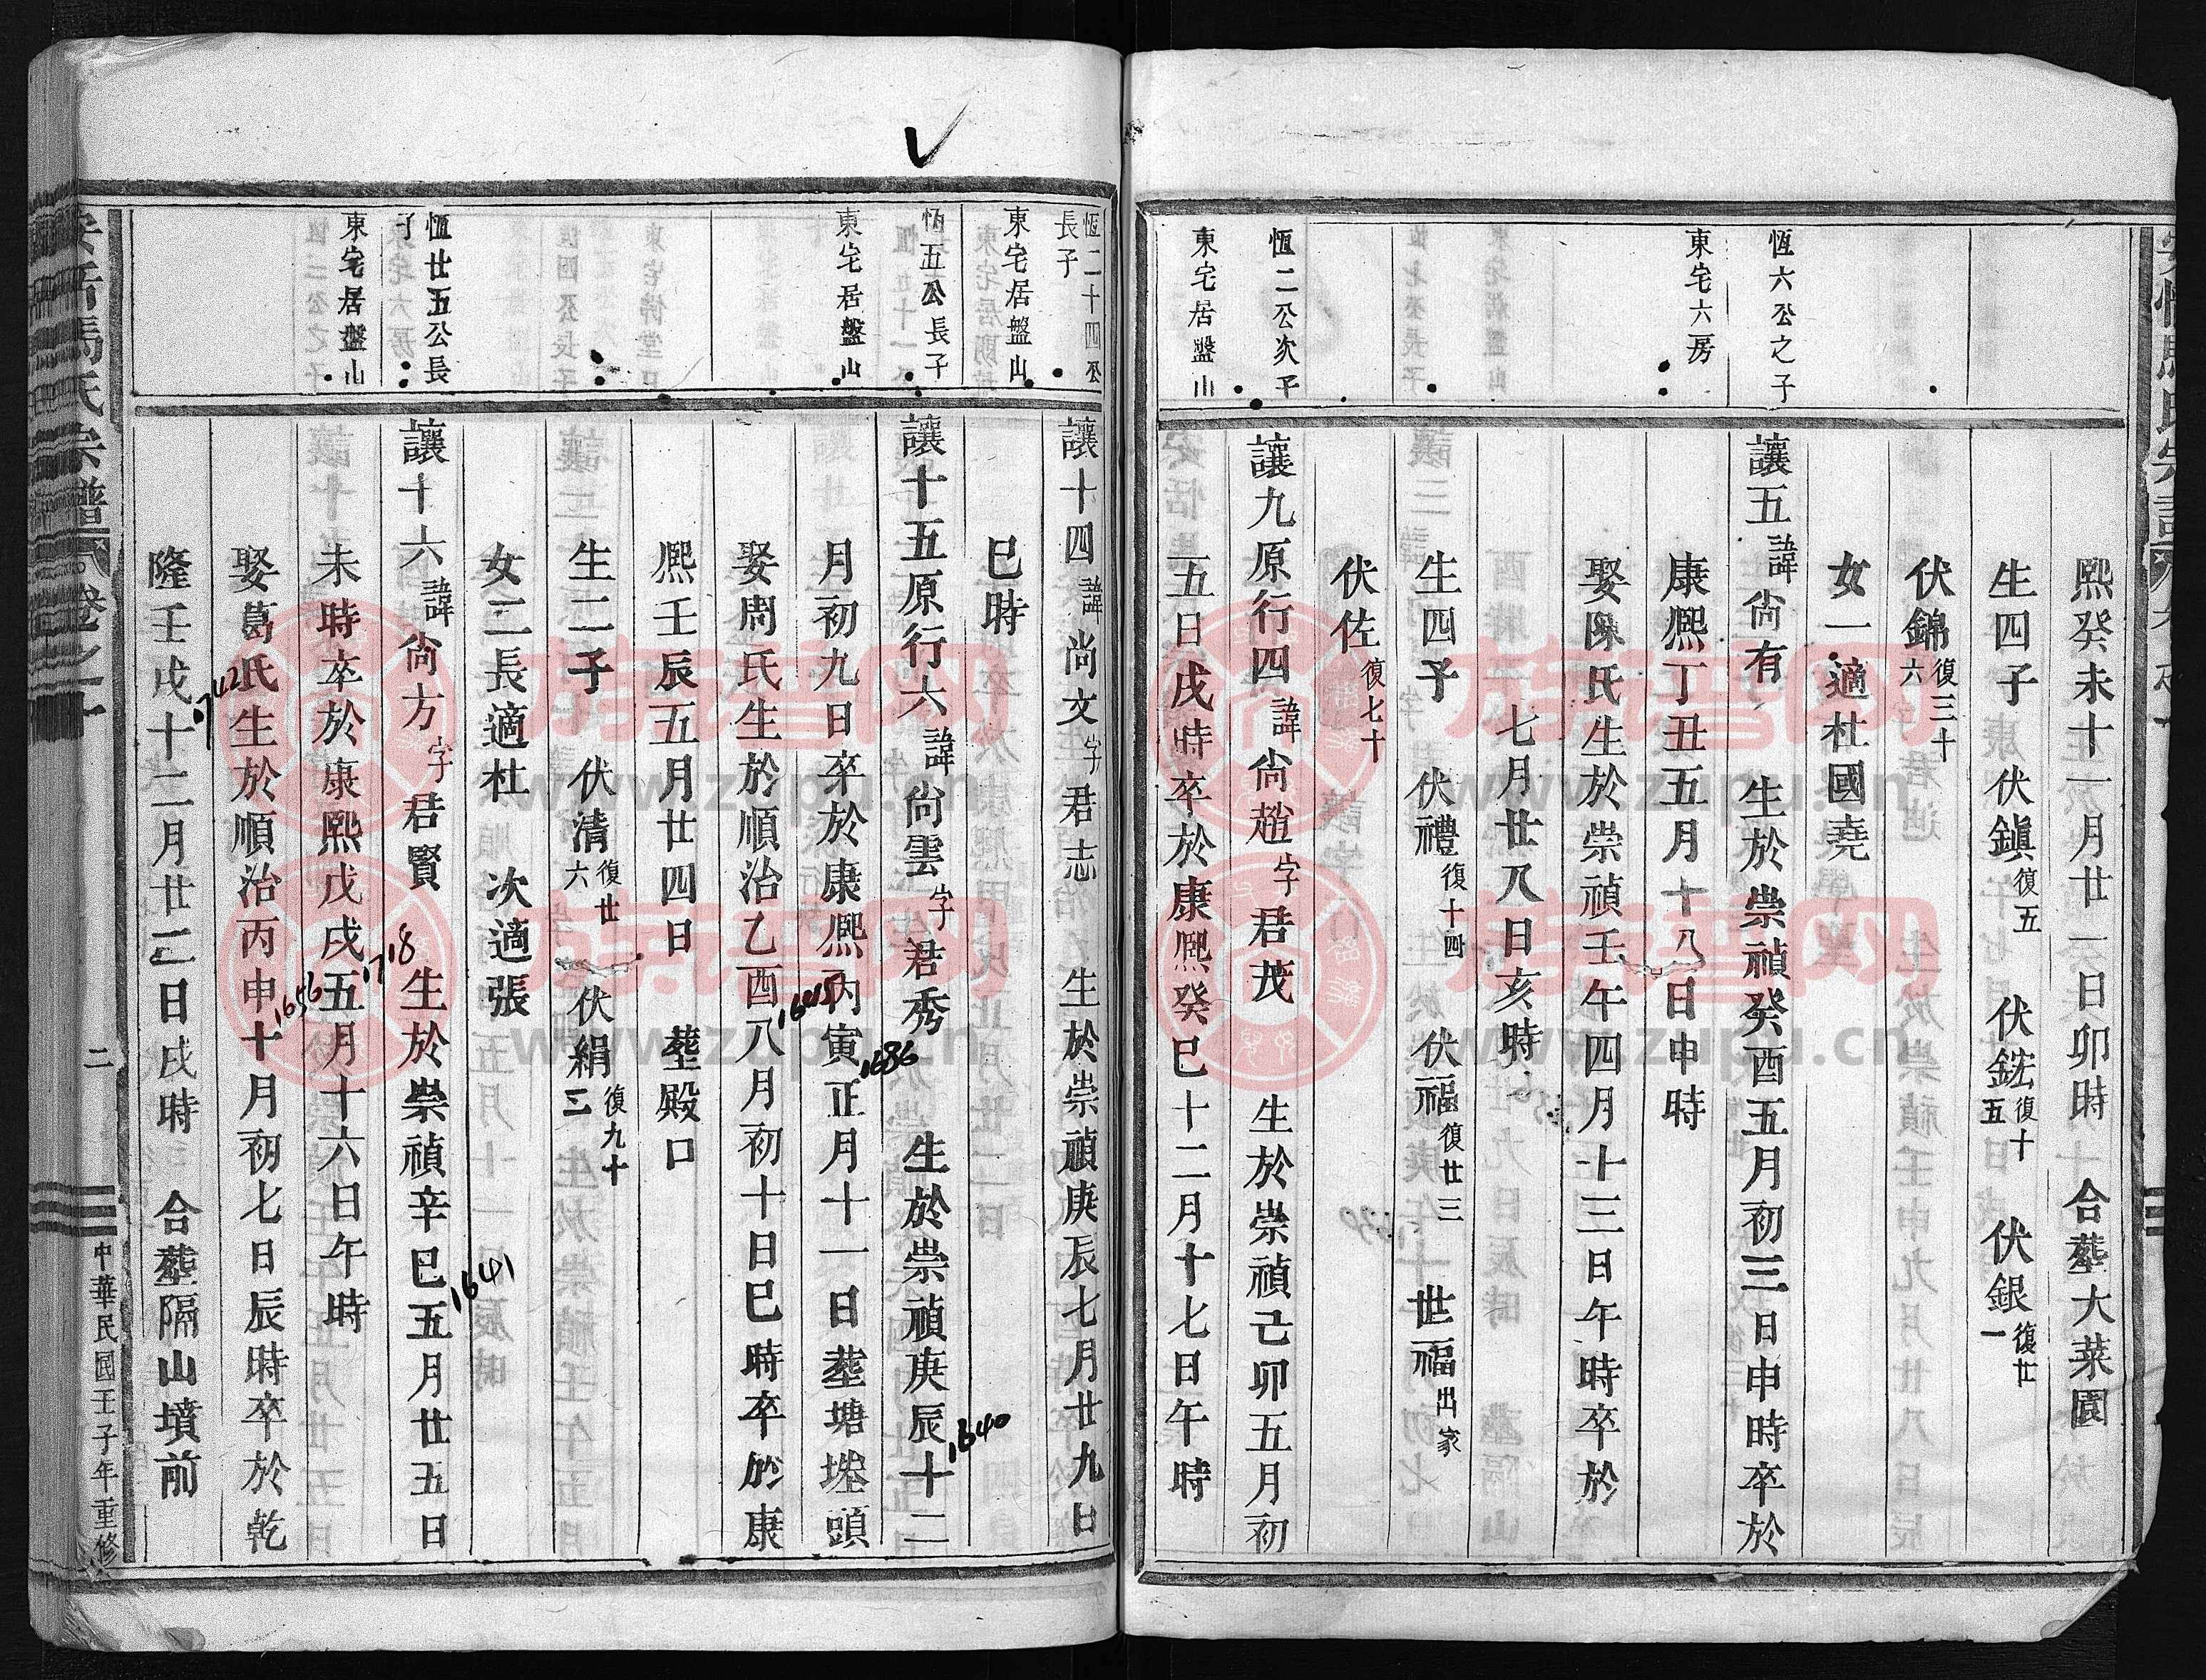 熙癸未十一月廿一日卯時　合塟大菜園
生四子　伏鎮復五　伏鋐復十五　伏銀復廿一
伏錦復三十六
女一適杜國堯
恆六公之子
東宅六房
讓五諱尙有　生於崇禎癸酉五月初三日申時卒於
康熙丁丑五月十八日申時
娶陳氏生於崇禎壬午四月十三日午時卒於
七月廿八日亥時
生四子　伏禮復十四　伏福復廿三　世福出家
伏佐復七十
恆二公次子
東宅居盤山
讓九原行四諱尙趙字君茂　生於崇禎己卯五月初
五日戌時卒於康熙癸巳十二月十七日午時
恆二十四公長子
東宅居盤山
讓十四諱尚文字君志　生於崇禎庚辰七月廿九日
巳時
恆五公長子
東宅居盤山
讓十五原行六諱尙雲字君秀　生於崇禎庚辰十二
1640
月初九日卒於康熙丙寅正月十一日塟塘塂頭
1686
娶周氏生於順治乙酉八月初十日巳時卒於康
1645
熙壬辰五月廿四日　塟殿口
生二子　伏清復廿六　伏絹復九十三
女二長適杜　次適張
恆廿五公長子
東宅居盤山
讓十六諱尙方字君賢　生於崇禎辛巳五月廿五日
1641
未時卒於康熙戊戌五月十六日午時
1718
娶葛氏生於順治丙申十月初七日辰時卒於乾
1656
隆壬戌十二月廿二日戌時　合塟隔山墳前
1742
馬氏宗譜　卷之
二
中華民國壬子年重修
族谱网
www.zupu.cn
族谱网
www.zupu.cn
族谱网
www.zupu.cn
族谱网
www.zupu.cn